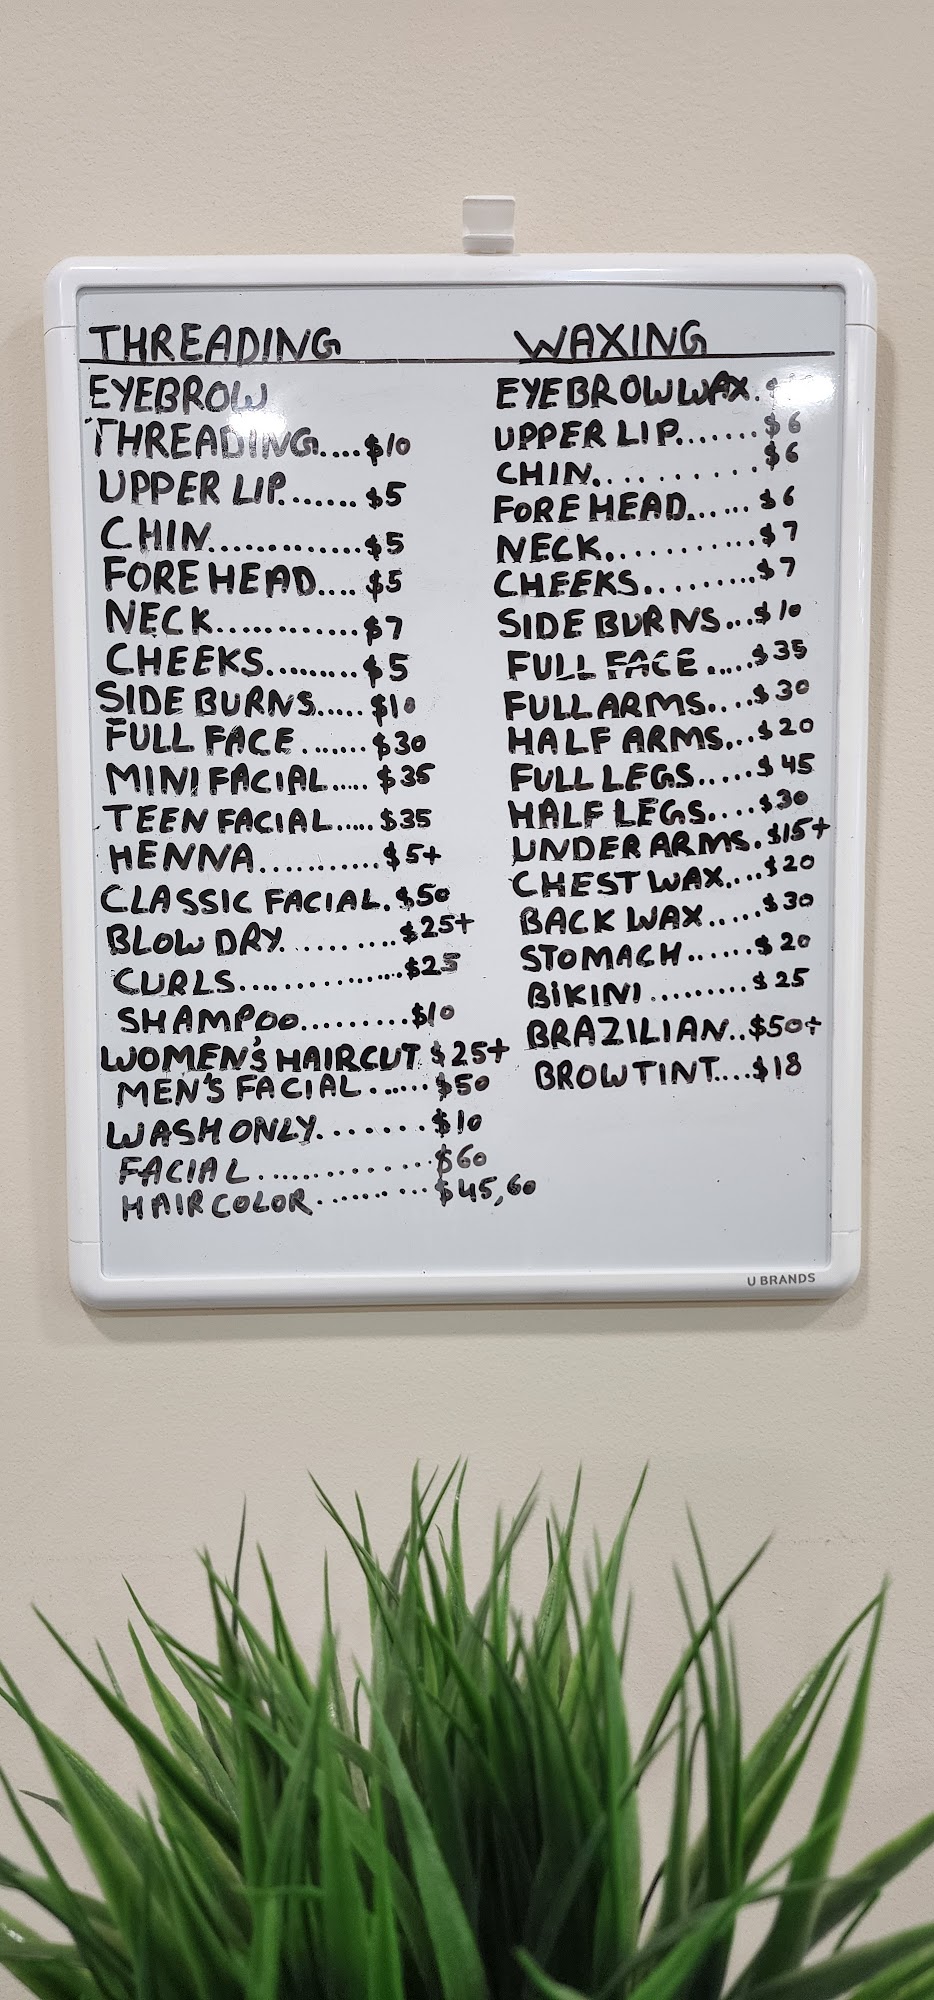 THREADING
EYEBROW
THREADING....$10
UPPER LIP.......$5
CHIN.............$5
FORE HEAD....$5
NECK............$7
CHEEKS.........$5
SIDE BURNS.....$10
FULL FACE.......$30
MINI FACIAL.....$35
TEEN FACIAL.....$35
HENNA..........$5+
CLASSIC FACIAL.$50
BLOW DRY..........$25+
CURLS..............$25
SHAMPOO.........$10
WOMEN'S HAIRCUT $25+
MEN'S FACIAL......$50
WASH ONLY........$10
FACIAL.............$60
HAIR COLOR.........$45,60
WAXING
EYEBROW WAX.
UPPER LIP.......$6
CHIN..........$6
FORE HEAD......$6
NECK..........$7
CHEEKS.........$7
SIDE BURNS...$10
FULL FACE.....$35
FULL ARMS....$30
HALF ARMS...$20
FULL LEGS.....$45
HALF LEGS....$30
UNDER ARMS.$15+
CHEST WAX....$20
BACK WAX.....$30
STOMACH......$20
BIKINI.........$25
BRAZILIAN..$50+
BROW TINT....$18
U BRANDS